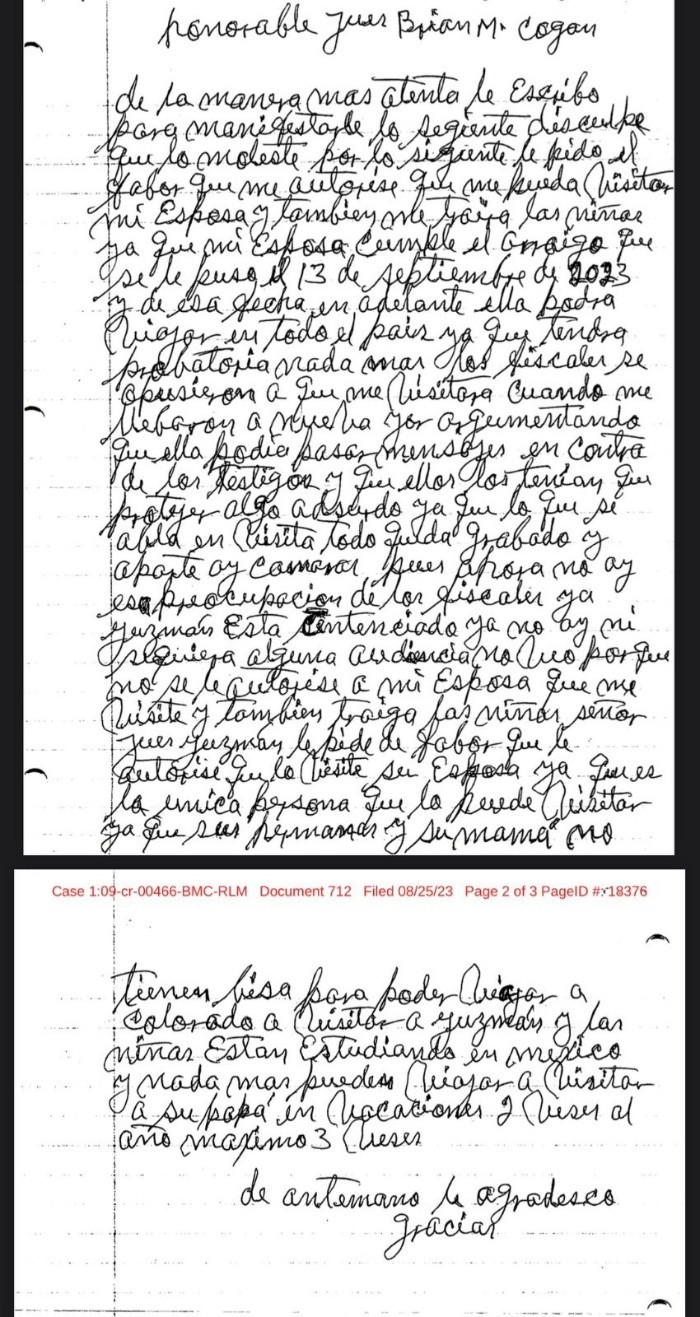 honorable Jues Brian M. Cogan
de la manera mas atenta le Escribo
para manifestarle lo segiente disculpe
que lo moleste por lo sigiente le pido el
fabor que me autorise que me pueda Visitar
mi Esposa y tambien me traiga las niñas
ya que mi Esposa Cumple el arraigo que
se le puso el 13 de septiembre de 2023
y de esa fecha en adelante ella podra
Viajar en todo el pais ya que tendra
probatoria nada mas los fiscales se
opusieron a que me Visitara Cuando me
llebaron a nueba yor argumentando
que ella podia pasar mensajes en contra
de los testigos y que ellos los tenian que
proteger algo adsurdo ya que lo que se
abla en Visita todo queda grabado y
aparte ay Camaras pues ahora no ay
esa preocupacion de los fiscales ya
guzmán Esta Centenciado ya no ay ni
siquiera alguna audiencia no veo por que
no se le autorise a mi Esposa que me
Visite y tambien traiga las niñas señor
jues guzmán le pide de fabor que le
autorise que lo Visite su Esposa ya que es
la unica persona que lo puede Visitar
ya que sus hermanas y su mamá no
Case 1:09-cr-00466-BMC-RLM Document 712 Filed 08/25/23 Page 2 of 3 PageID #: 18376
tienen bisa para poder Viajar a
Colorado a Visitar a guzmán y las
niñas Estan Estudiando en mexico
y nada mas pueden Viajar a Visitar
a su papá en Vacaciones 2 Veses al
año maximo 3 Veses
de antemano le agradesco
gracias